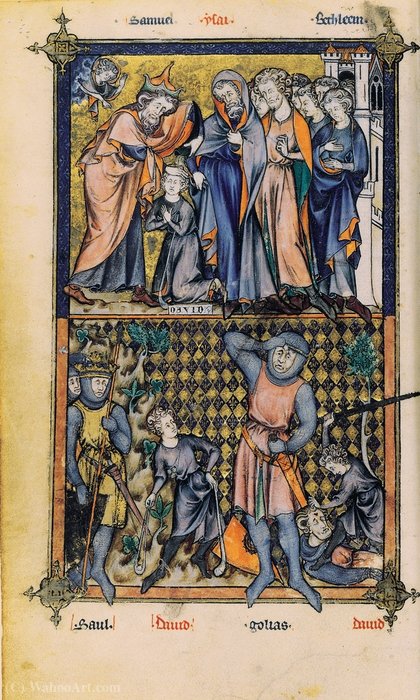 Samuel ysai. Bethleem.
DAVID
Saul. Dauid golias. dauid
(C) WahooArt.com